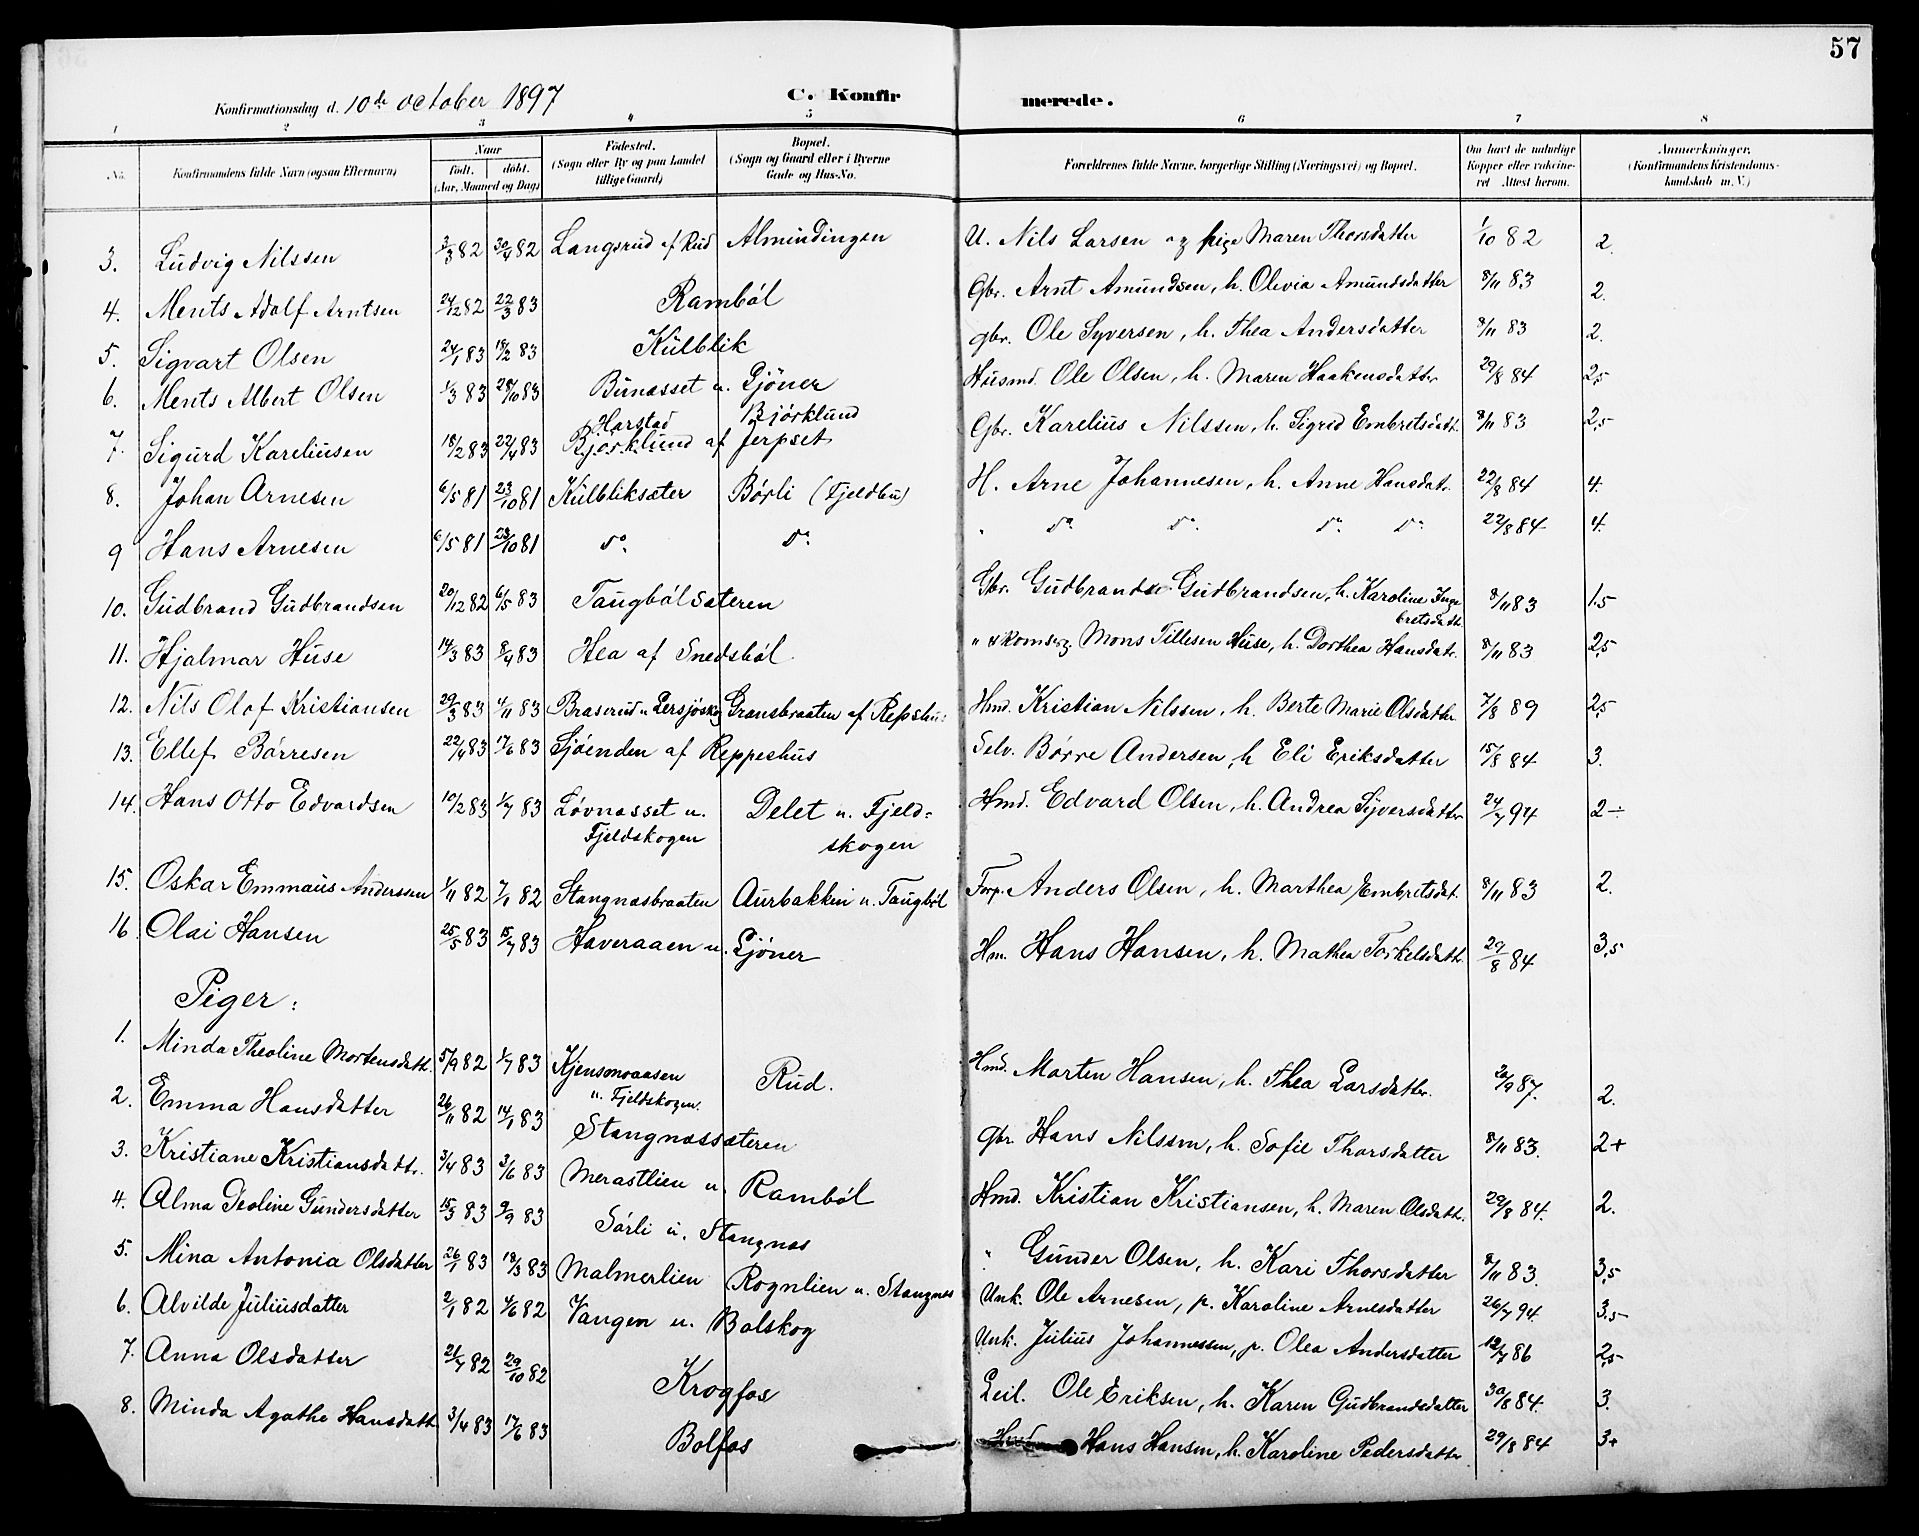 57
Konfirmationsdag d. 10de October 1897 C. Konfir merede.
1 2 3 4 5 6 7 8
No. Konfirmandens fulde Navn (ogsaa Efternavn) Naar født. døbt. (Aar, Maaned og Dag) Fødested. (Sogn eller By og paa Landet tillige Gaard) Bopæl. (Sogn og Gaard eller i Byerne Gade og Hus-No. Forældrenes fulde Navne, borgerlige Stilling (Næringsvei) og Bopæl. Om havt de naturlige Kopper eller vakcineret Attest herom. Anmærkninger. (Konfirmandens Kristendomskundskab m. V.)
3. Ludvig Nilssen 3/3 82 30/4 82 Langsrud af Rud Almindingen U. Nils Larsen og pige Maren Thorsdatter 1/10 82 2.
4. Ments Adolf Arntsen 24/12 82 22/3 83 Rambøl Gbr. Arnt Amundsen, h. Olivia Amundsdatter 8/11 83 2.
5. Sigvart Olsen 24/1 83 18/2 83 Kulblik gbr. Ole Syversen, h. Thea Andersdatter 8/11 83 2.
6. Ments Albert Olsen 1/3 83 28/10 83 Bunæsset u. Gjøner Husmd. Ole Olsen, h. Maren Haakensdatter 29/8 84 2,5
Harstad Bjørklund
7. Sigurd Kareliusen 18/2 83 22/4 83 Bjørklund af Jerpset Gbr. Karelius Nilssen, h. Sigrid Embretsdatt. 8/11 83 2,5
8. Johan Arnesen 6/5 81 23/10 81 Kulbliksæter Børli (Fjeldbu) H. Arne Johannesen, h. Anne Hansdatr. 22/8 84 4.
9 Hans Arnesen 6/5 81 23/10 81 do. do. " do. do. do. do. 22/8 84 4.
10. Gudbrand Gudbrandsen 20/12 82 6/5 83 Taugbølsæteren Gbr. Gudbrand Gudbrandsen, h. Karoline Inge 8/11 83 1.5
bretsdatt.
11. Hjalmar Huse 14/3 83 8/4 83 Hea af Snedsbøl. " & skomag. Mons Tillesen Huse, h. Dorthea Hansdatr. 8/11 83 2,5
12. Nils Olaf Kristiansen 29/3 83 4/11 83 Braserud u. Gersjøskog Gransbraaten af Repshu: Hmd. Kristian Nilssen, h. Berte Marie Olsdatter 7/8 89 2,5
13. Ellef Børresen 22/4 83 17/6 83 Sjøenden af Reppeshus Selv. Børre Andersen, h Eli Eriksdatter 15/8 84 3.
14. Hans Otto Edvardsen 10/2 83 1/7 83 Løvnæsset u. Delet u. Fjeld= Hmd. Edvard Olsen, h. Andrea Syversdatter 24/7 94 2÷
Fjeldskogen skogen
15. Oskar Emmaus Anderssen 1/11 82 7/1 82 Stangnæsbraaten Aurbakken u. Taugbøl Torp. Anders Olsen, h. Marthea Embretsdat. 8/11 83 2.
16 Olai Hansen 25/5 83 15/7 83 Haveraaen u. Gjøner Hm. Hans Hansen, h. Mathea Torkelsdatt. 29/8 84 3,5
Piger:
1. Minda Theoline Mortensdatt. 5/9 82 1/7 83 Kjensmoaasen Rud. Hmd. Morten Hansen, h. Thea Larsdatter. 20/9 87. 2.
u. Fjeldskogen.
2. Emma Hansdatter 26/11 82 14/1 83 Stangnæssæteren gbr Hans Nilssen, h. Sofie Thorsdatter 8/11 83. 2+
3. Kristiane Kristiansdattr. 3/4 83 3/6 83 Merastlien u. Rambøl Hmd. Kristian Kristiansen, h. Maren Olsdatt. 29/8 84. 2.
4. Alma Teoline Gundersdatter 15/3 83 9/9 83 Sørli u. Stangnæs " Gunder Olsen, h. Kari Thorsdatter 8/11 83. 3,5
5. Mina Antonia Olsdatter 26/1 83 18/3 83 Malmerlien Rognlien u. Stangnæs Unk. Ole Arnesen, p. Karoline Arnesdatter 26/7 94. 3.5
6. Alvilde Juliusdatter 2/1 82 4/6 82 Vangen u. Bolskog Unk. Julius Johannessen, p. Olea Andersdatter 12/7 86 2,5
7. Anna Olsdatter 21/7 82 29/10 82 Krogfos Leil. Ole Eriksen, h. Karen Gudbrandsdatter 30/8 84. 3.
8. Minda Agathe Hansdatt 3/4 83 17/6 83 Bolfos Hans Hansen, h. Karoline Pedersdatter 29/8 84 3+